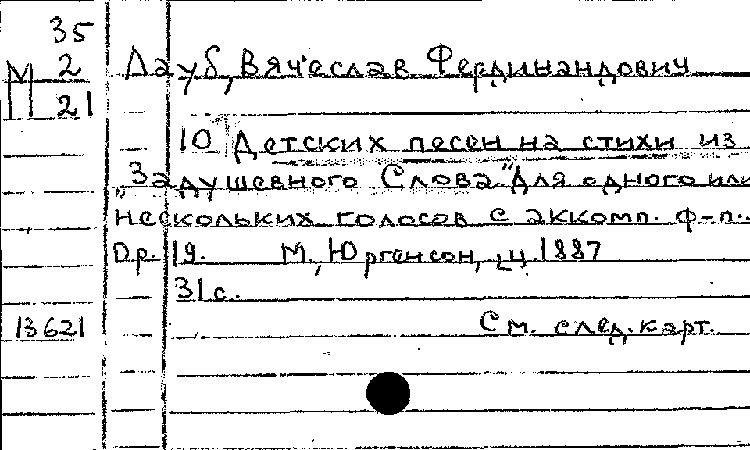 35
М 2
21
Дауб, Вячеслав Фердинандович
10 Детских песен на стихи из
„Задушевного Слова" для одного или
нескольких голосов с аккомп. ф-п.
Ор. 19. М., Юргенсон, ц. 1887
31 с.
13621
См. след. карт.